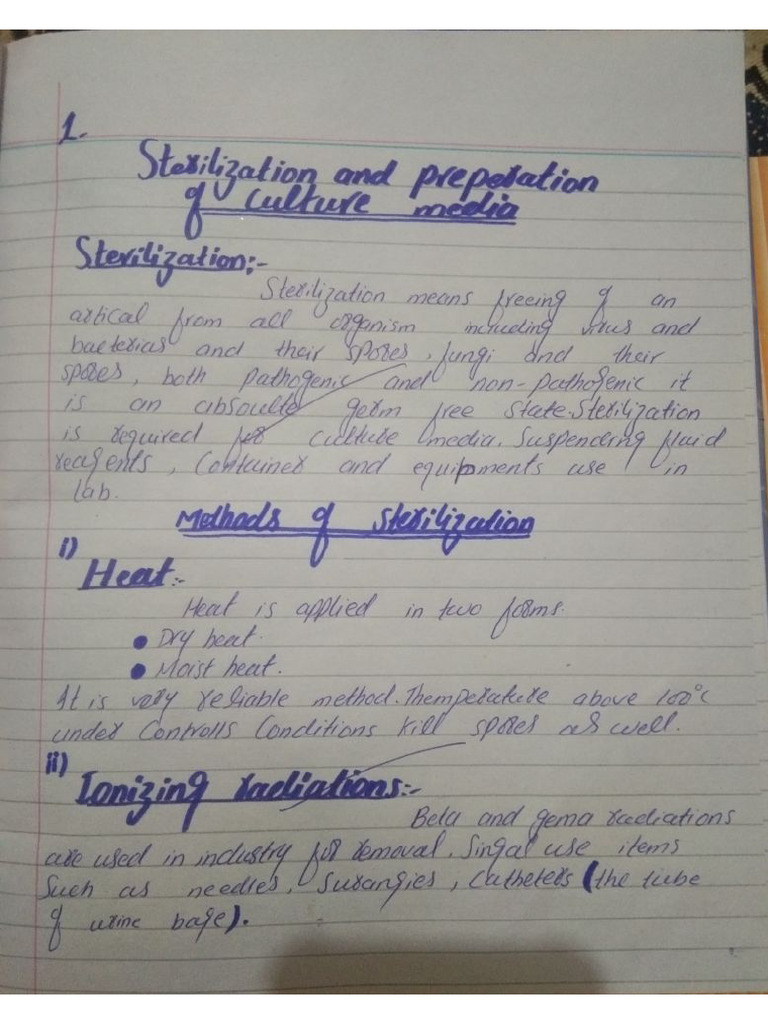 1.
Sterilization and preperation
of culture media
Sterilization:-
Sterilization means freeing of an
artical from all organism including virus and
bacterias and their spores, fungi and their
spores, both pathogenic and non-pathogenic it
is an absoulte germ free state. Sterilization
is required for culture media. Suspending fluid
reagents, Container and equipments use in
lab.
Methods of sterilization
i)
Heat:-
Heat is applied in two forms.
• Dry heat.
• Moist heat.
It is very reliable method. Themperature above 100°c
under Controlls Conditions Kill spores as well.
ii)
Ionizing radiations:-
Beta and gema radiations
are used in industry for removal. Singal use items
Such as needles, Surangies, Catheters (the tube
of urine bage).